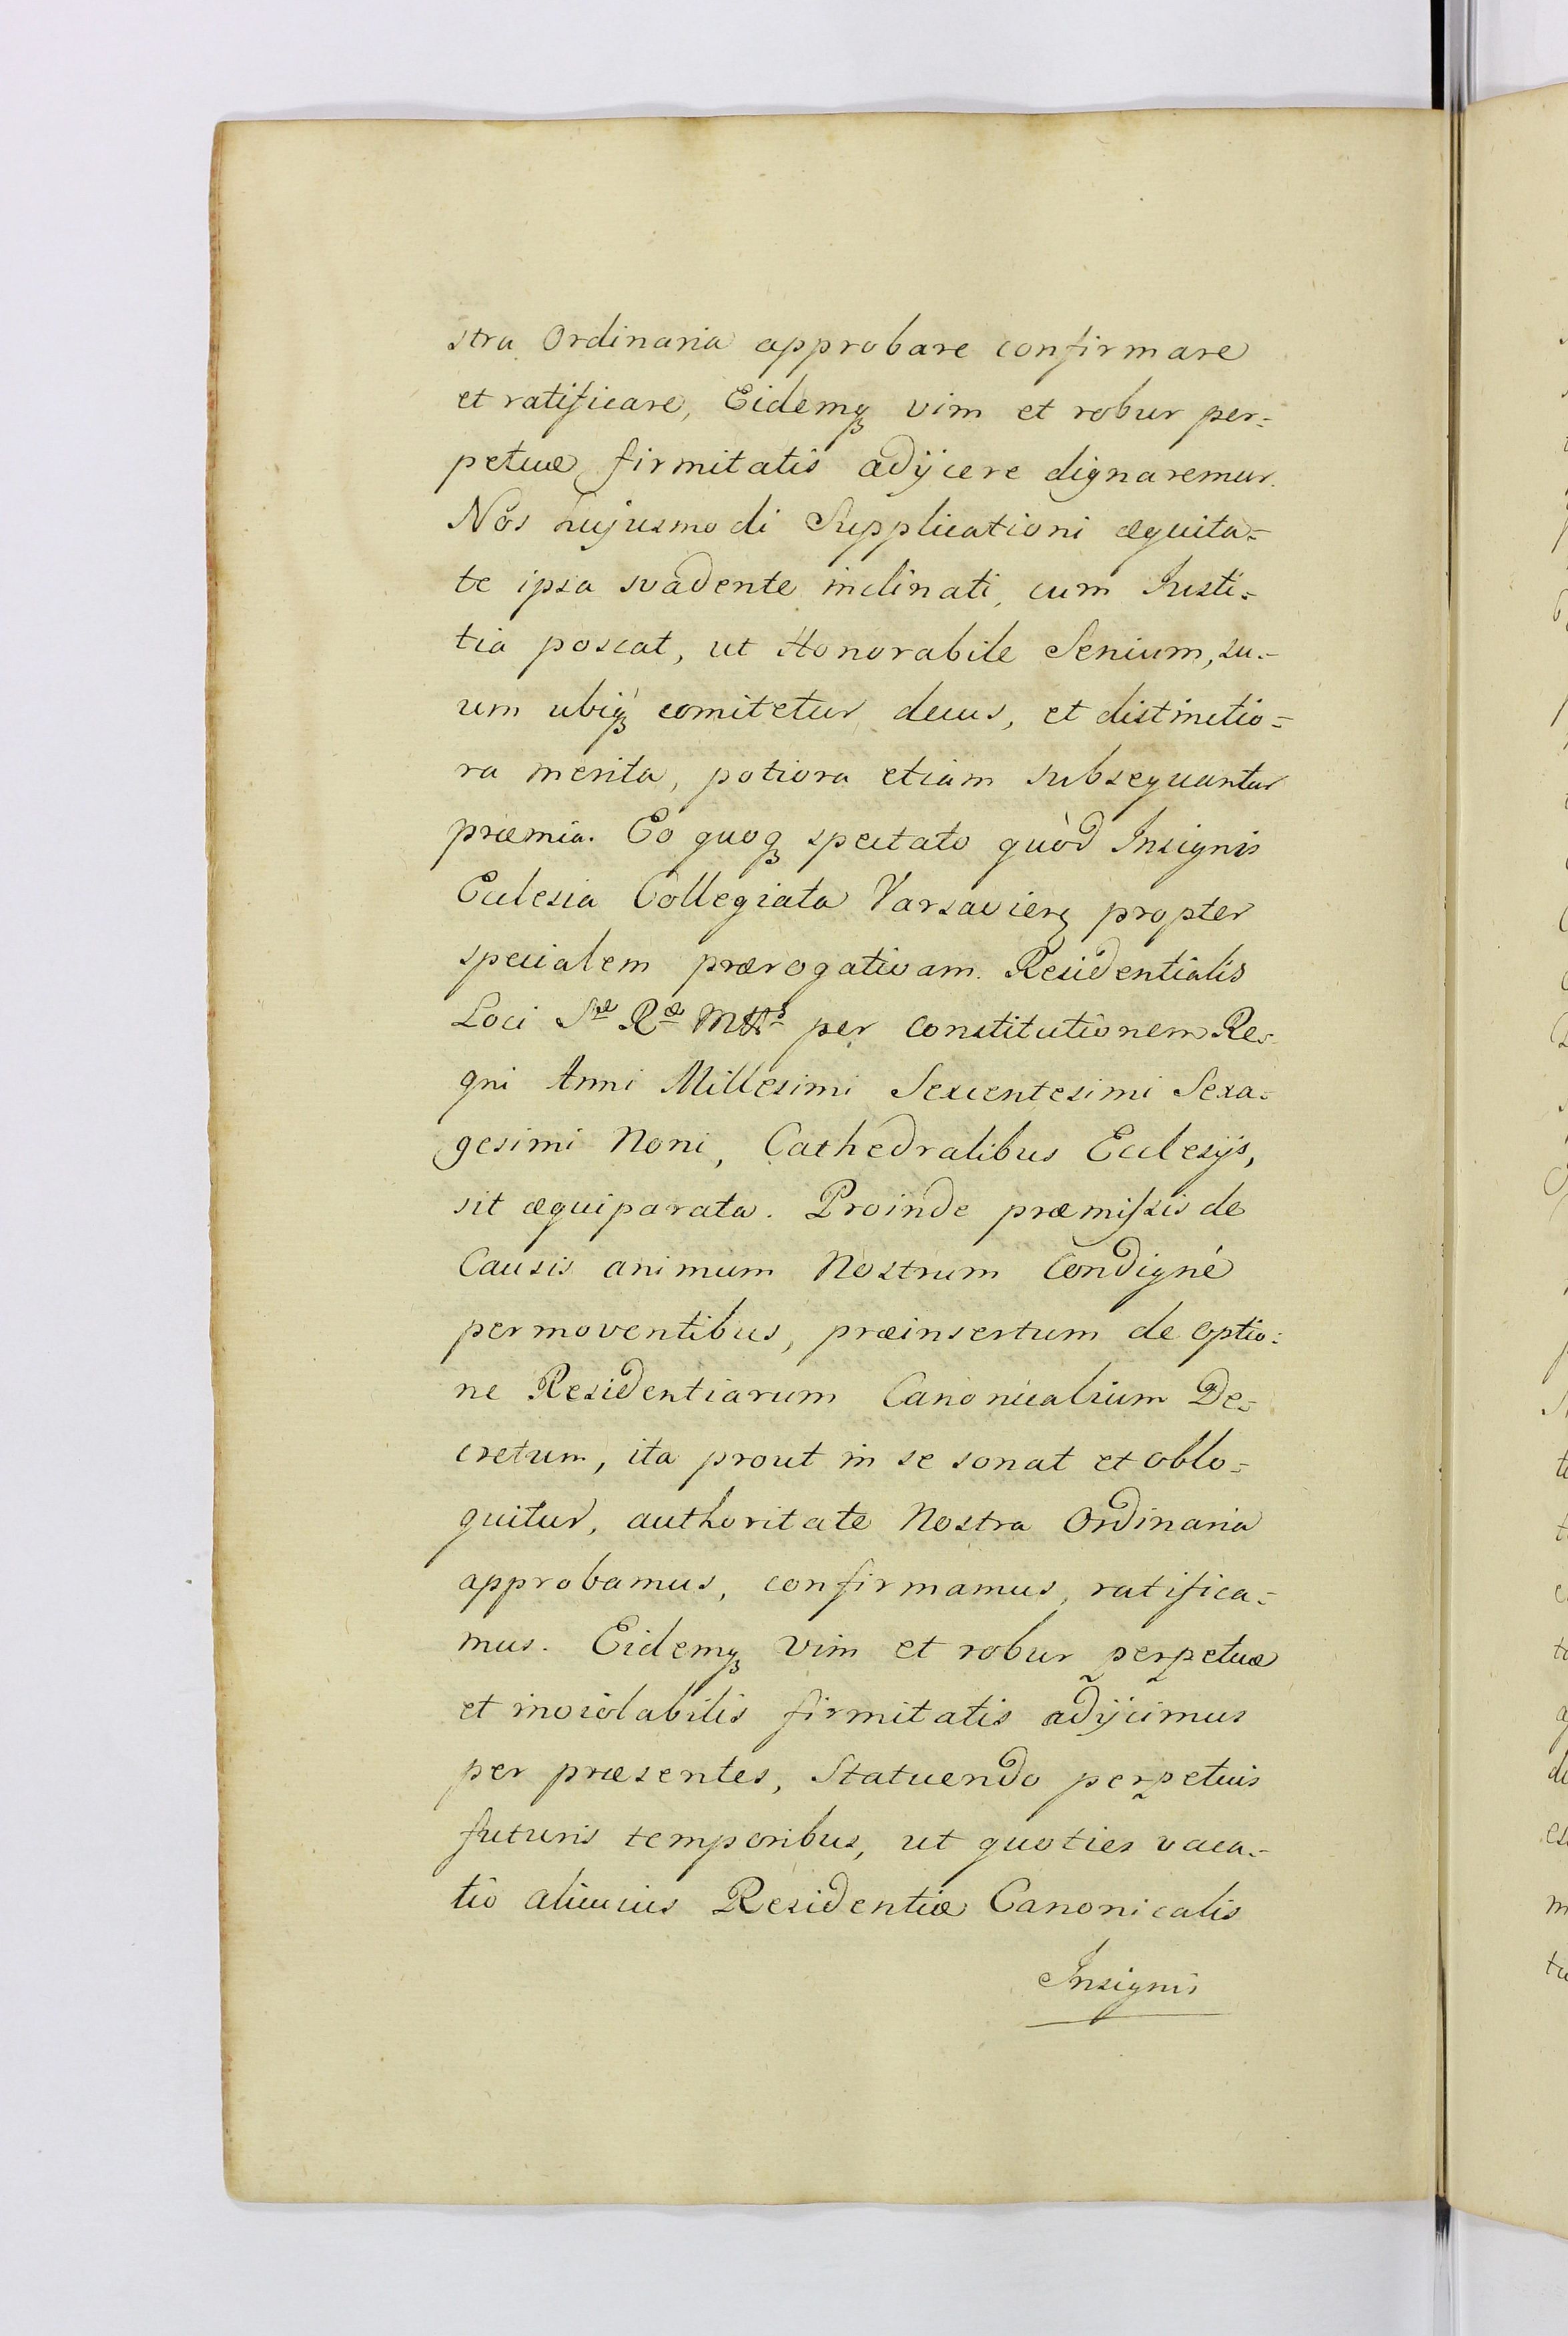 stra Ordinaria approbare confirmare
et ratificare, Eidemqꝫ vim et robur per=
petuæ firmitatis adijcere dignaremur.
Nos hujusmodi Supplicationi æquita=
te ipsa svadente inclinati, cum Justi=
tia poscat, ut Honorabile Senium, su=
um ubiqꝫ comitetur decus, et distinctio=
ra merita, potiora etiam subsequantur
præmia. Eo quoqꝫ spectato quòd Insignis
Ecclesia Collegiata Varsavien̄ propter
specialem prærogativam Residentialis
Loci Sæ Ræ Mttis per Constitutionem Re=
gni Anni Millesimi Sexcentesimi Sexa=
gesimi Noni, Cathedralibus Ecclesijs,
sit æquiparata. Proinde præmissis de
Causis animum Nostrum Condigné
permoventibus, præinsertum de optio=
ne Residentiarum Canonicalium De=
cretum, ita prout in se sonat et oblo=
quitur, authoritate Nostra Ordinaria
approbamus, confirmamus, ratifica=
mus. Eidemqꝫ vim et robur perpetuæ
et inviolabilis firmitatis adijcimus
per præsentes, Statuendo perpetuis
futuris temporibus, ut quoties vaca=
tio alicuius Residentiæ Canonicalis
Insignis